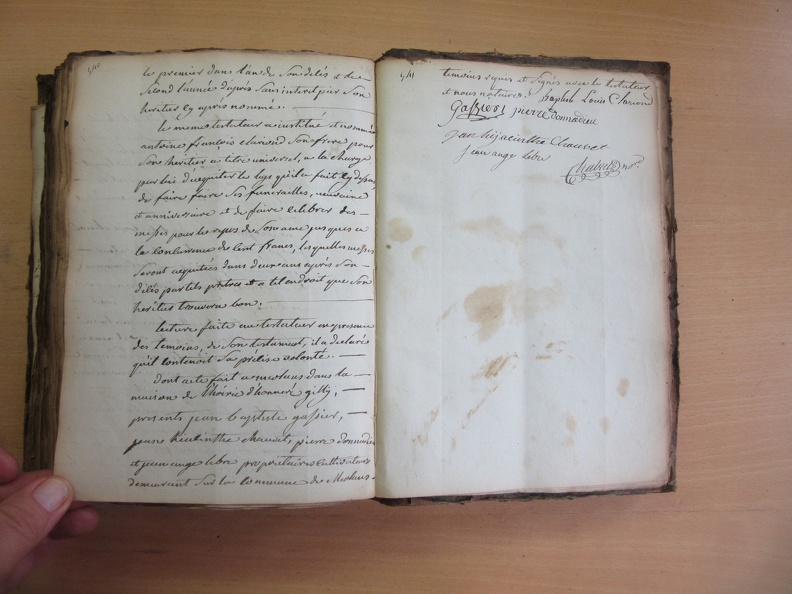 540
le premier dans l'an de Son délés et de
Second l'année d'après Sans interet par Son
heritier cy après nommé.
le meme testateur a institué et nommé
antoine françois clariond Son frere pour
Son heritier a titre universel, a la charge
par lui d'acquiter les legs qu'il a fait cy dessus,
de faire faire Ses funerailles, neuvaine
et anniversaire et de faire celebrer des
messes pour le repos de Son ame jusques a
la concurrence de Cent francs, lesquelles messes
Seront acquitées dans deux ans après Son
délés par tels prêtres et a tel endroit que Son
heritier trouvera bon.
lecture faite au testateur en presence
des temoins, de Son testament, il a declaré
qu'il contenoit Sa precise volonté.
dont acte fait a meolans dans la
maison de d'honneré gilly,
presents jean baptiste gassier,
jean chauvet, pierre donnadieu
et jean ange lebre proprietaires cultivateurs
demeurant Sur la commune de Meolans
541
temoins requis et Signés avec le testateur
et nous notaire. baptiste Louis Clariond
gassier pierre donnadieu
jean hijacinthe Chauvet
jean ange lebre
nore